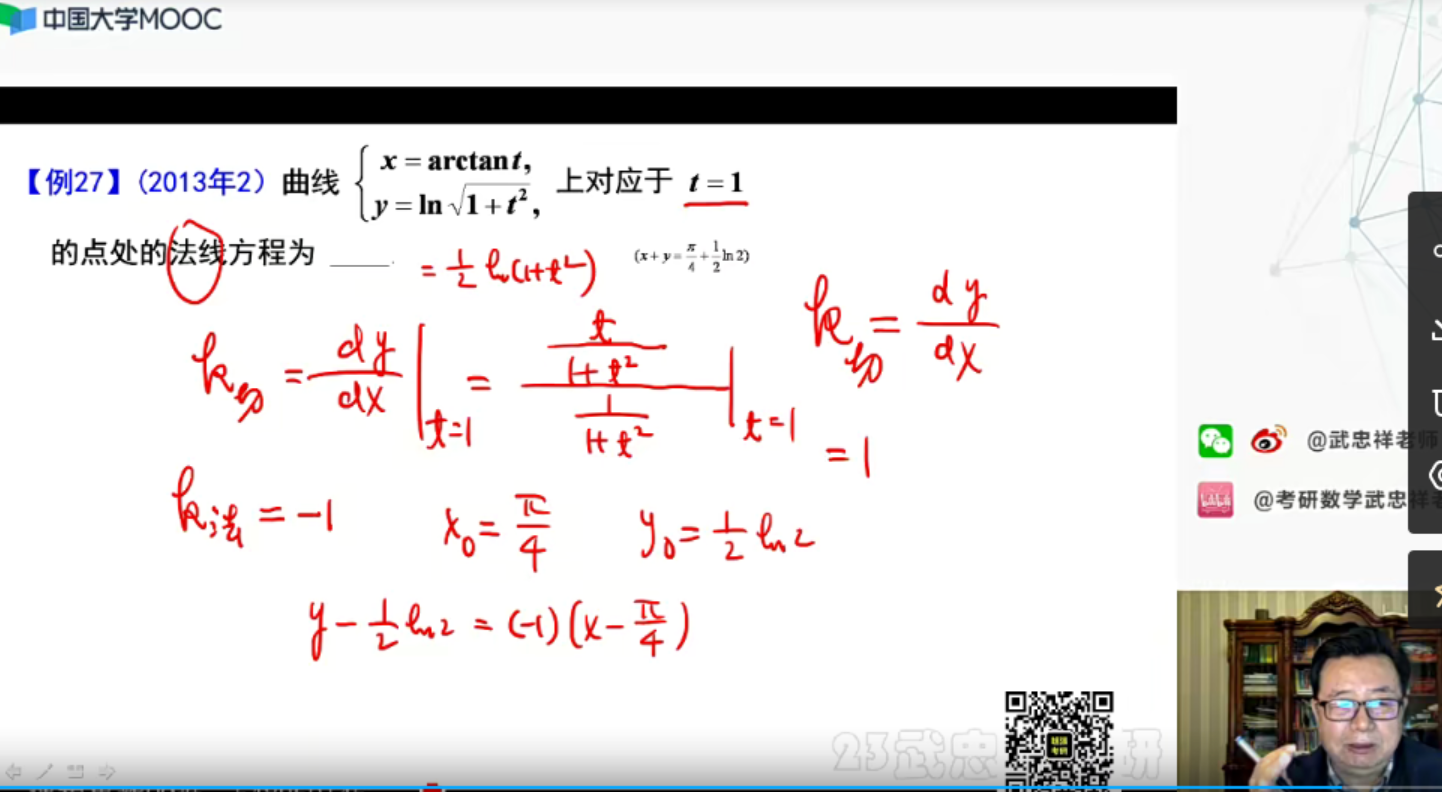 中国大学MOOC
【例27】(2013年2) 曲线 { x = arctan t, y = ln √(1+t²), 上对应于 t = 1
的点处的法线方程为 _____.
= 1/2 ln(1+t²) (x + y = π/4 + 1/2 ln 2)
k切 = dy/dx
k切 = dy/dx |t=1 = (t/(1+t²))/(1/(1+t²)) |t=1 = 1
@武忠祥老师
@考研数学武忠祥老
k法 = -1 x₀ = π/4 y₀ = 1/2 ln 2
y - 1/2 ln 2 = (-1)(x - π/4)
23武忠 研